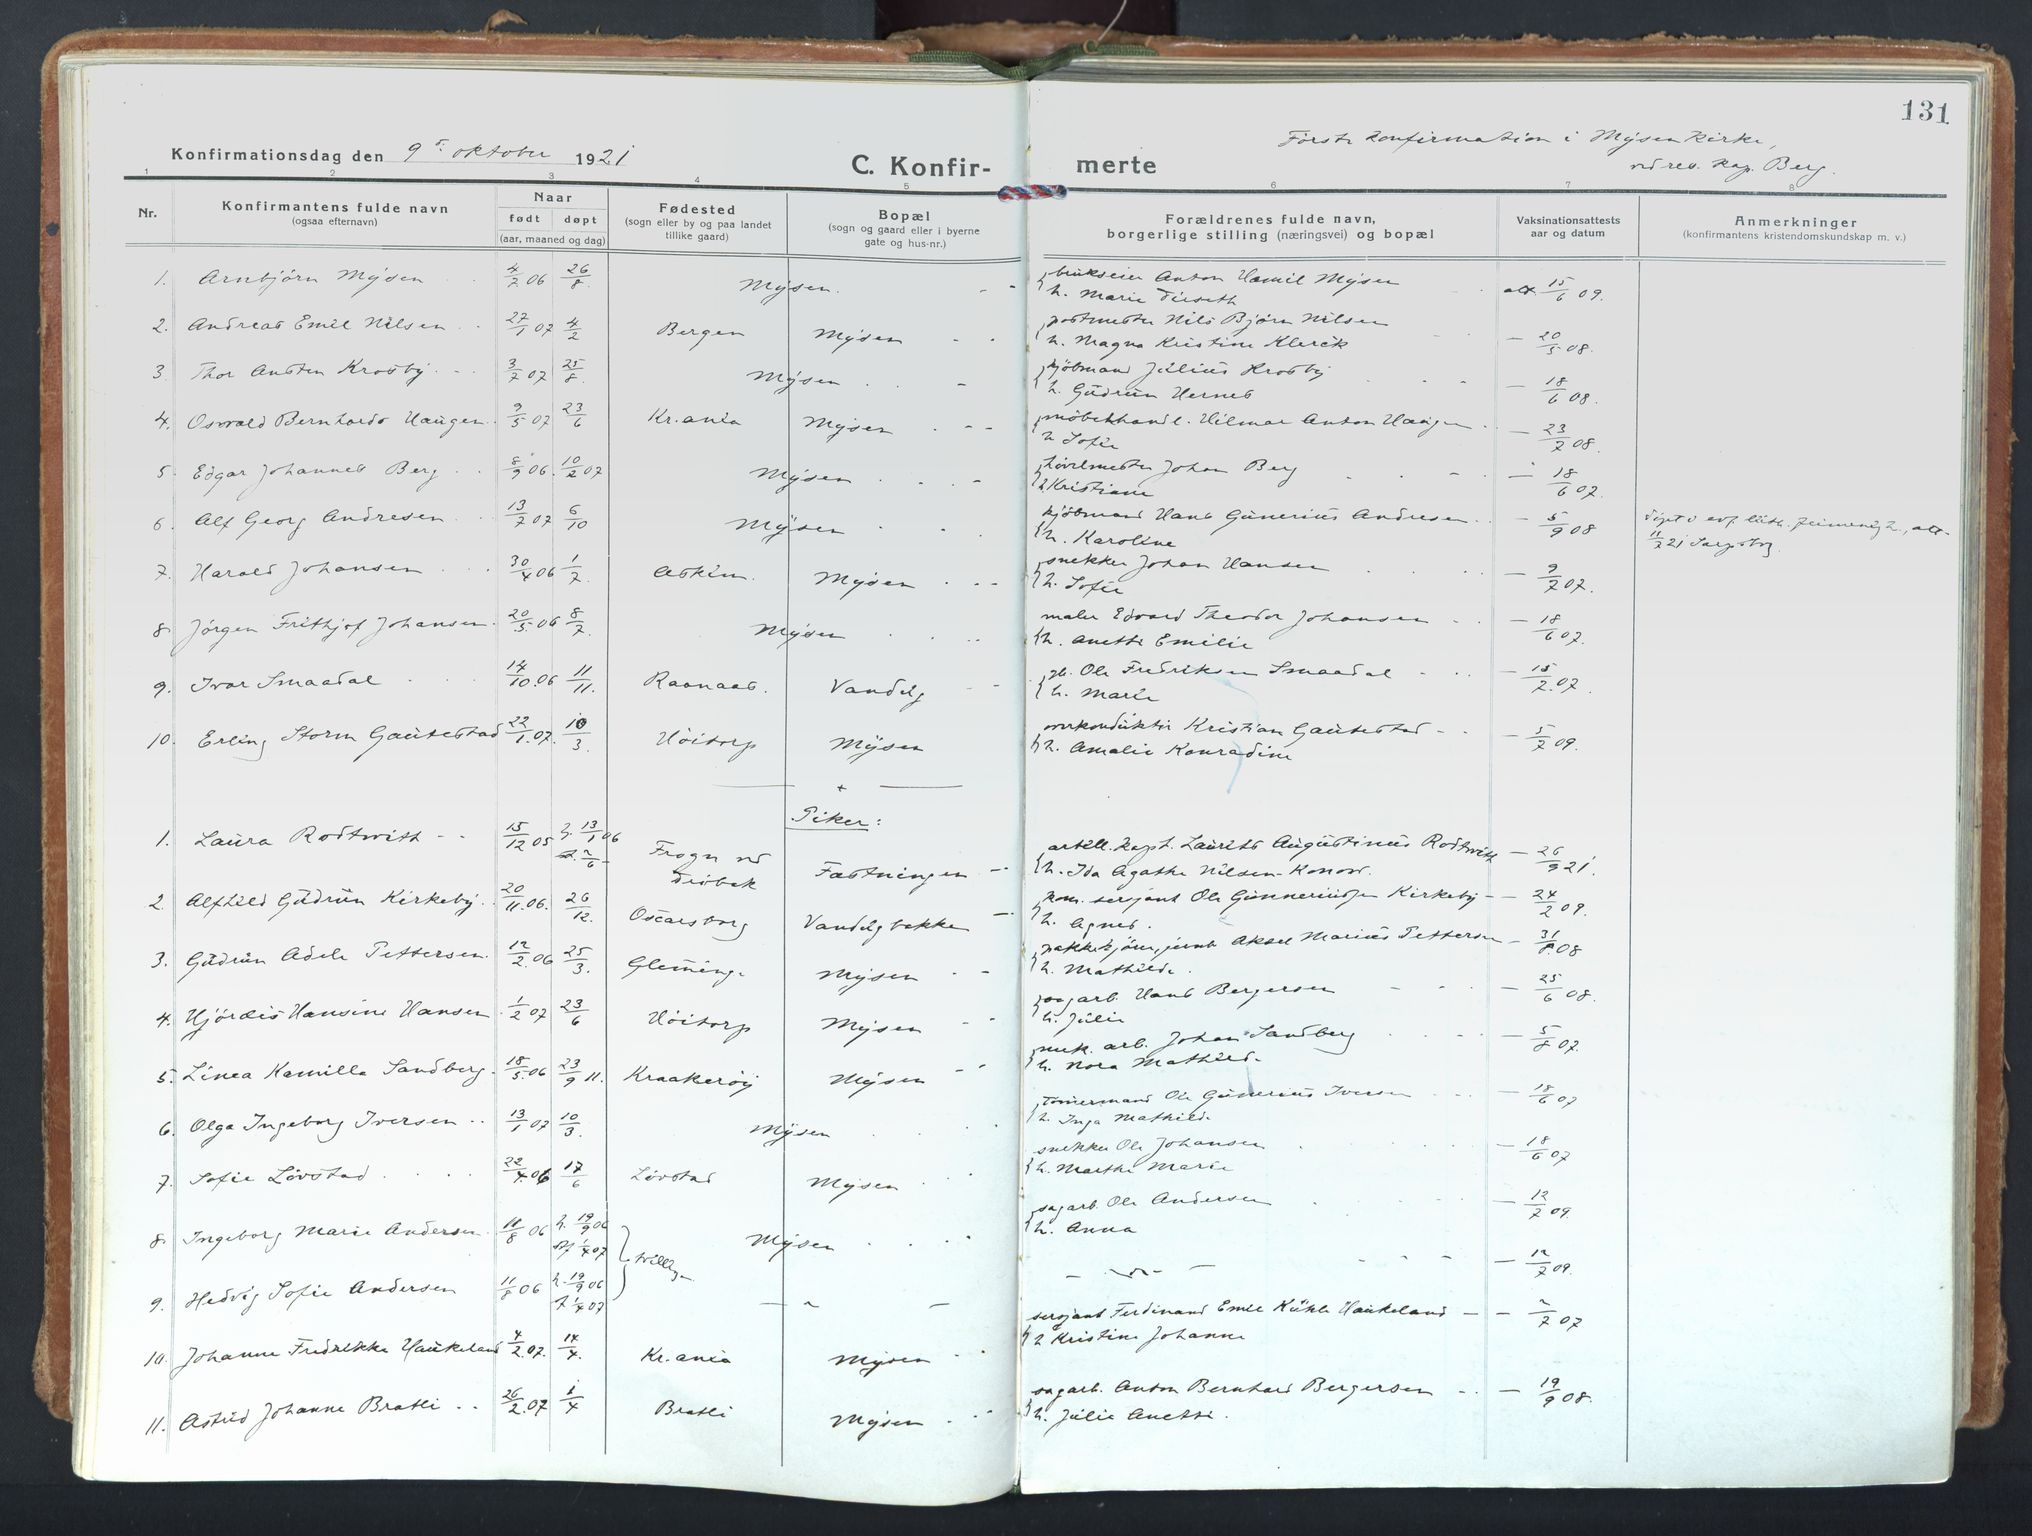 131
Konfirmationsdag den 9 oktober 1921
C. Konfirmerte
Første konfirmation i Mysen kirke,
ved res. kap. Berg.
1 2 3 4 5 6 7 8
Nr.
Konfirmantens fulde navn
(ogsaa efternavn)
Naar
født døpt
(aar, maaned og dag)
Fødested
(sogn eller by og paa landet
tillike gaard)
Bopæl
(sogn og gaard eller i byerne
gate og hus-nr.)
Forældrenes fulde navn,
borgerlige stilling (næringsvei) og bopæl
Vaksinationsattests
aar og datum
Anmerkninger
(konfirmantens kristendomskundskap m. v.)
1. Arnbjørn Mysen 4/7 06 26/8. Mysen. brukseier Anton Hamil Mysen att. 15/6 09.
h. Marie
2. Andreas Emil Nilsen 27/1 07 4/2 Bergen Mysen postmester Nils Bjørn Nilsen — 20/5 08.
h. Magna Kristine Klerck
3. Thor Austen Krosby 3/7 07 25/8. Mysen kjøbmand Julius Krosby — 18/6 08.
h. Gudrun Hernes
4. Oswald Bernhardo Haugen 9/5 07 23/6 Kr.ania Mysen møbelhandl. Hilmar Anton Haugen — 23/7 08.
h. Sofie
5. Edgar Johannes Berg 8/9 06. 10/2 07 Mysen Johan Berg — 18/6 07.
h. Kristiane
6. Alf Georg Andresen 13/7 07 6/10 Mysen kjøbmand Hans Gunerius Andresen — 5/9 08
h. Karoline
11/7 21 Sarpsborg.
7. Harald Johansen 30/4 06 1/7. Askim. Mysen snekker Johan Hansen — 9/7 07.
h. Sofie
8. Jørgen Frithjof Johansen 20/5 06 8/7. Mysen maler Edvard Theodor Johansen — 18/6 07.
h. Anette Emilie
9. Ivar Smaadal 14/10 06 11/11. Raanaas. Vandelg gb. Ole Fredriksen Smaadal — 15/2 07.
h. Marie
10. Erling Storm Gautestad 22/1 07. 10/3. Høitorp Mysen overkonduktør Kristian Gautestad — 5/7 09.
h. Amalie Konradine
Piker:
1. Laura Rodtwitt 15/12 05 h. 13/1 06 Frogn ved Drøbak Fæstningen artill. kapt. Laurits Augustinus Rodtwitt — 26/9 21.
h. Ida Agathe Nilsen-Konow.
2. Alfhild Gudrun Kirkeby 20/11 06. 26/12. Oscarsborg Vandelgbakke kom. sersjant Ole Gunneriusen Kirkeby — 24/2 09.
h. Agnes.
3. Gudrun Adele Pettersen 12/2 06 25/3. Glemminge Mysen Aksel Marius Pettersen — 31/8 08
h. Mathilde.
4. Hjørdis Hansine Hansen 1/2 07 23/6 Høitorp Mysen sagarb. Hans Bergersen — 25/6 08.
h. Julie
5. Linea Kamilla Sandberg 18/5 06 23/9 11. Kraakerøy Mysen mek. arb. Johan Sandberg — 5/8 07.
h. Nora Mathilde
6. Olga Ingeborg Iversen 13/1 07 10/3. Mysen tømmermand Ole Gunerius Iversen — 18/6 07
h. Inga Mathilde
7. Sofie Løvstad 22/4 06 17/6 Løvstad Mysen snekker Ole Johansen — 18/6 07
h. Marthe Marie
8. Ingeborg Marie Andersen 11/8 06 h. 19/9 06 1/4 07 Mysen sagarb. Ole Andersen — 12/7 09.
h. Anna
9. Hedvig Sofie Andersen 11/8 06 h. 19/9 06 1/4 07 — „ — — „ — — 12/7 09.
10. Johanne Fredrikke Haukeland 4/2 07. 14/4. Kr.ania Mysen sersjant Ferdinand Emil Kühle Haukeland — 2/7 07
h. Kristine Johanne
11. Astrid Johanne Bratli 26/2 07 1/4 Bratli Mysen sagarb. Anton Bernhard Bergersen — 19/9 08.
h. Julie Anette.